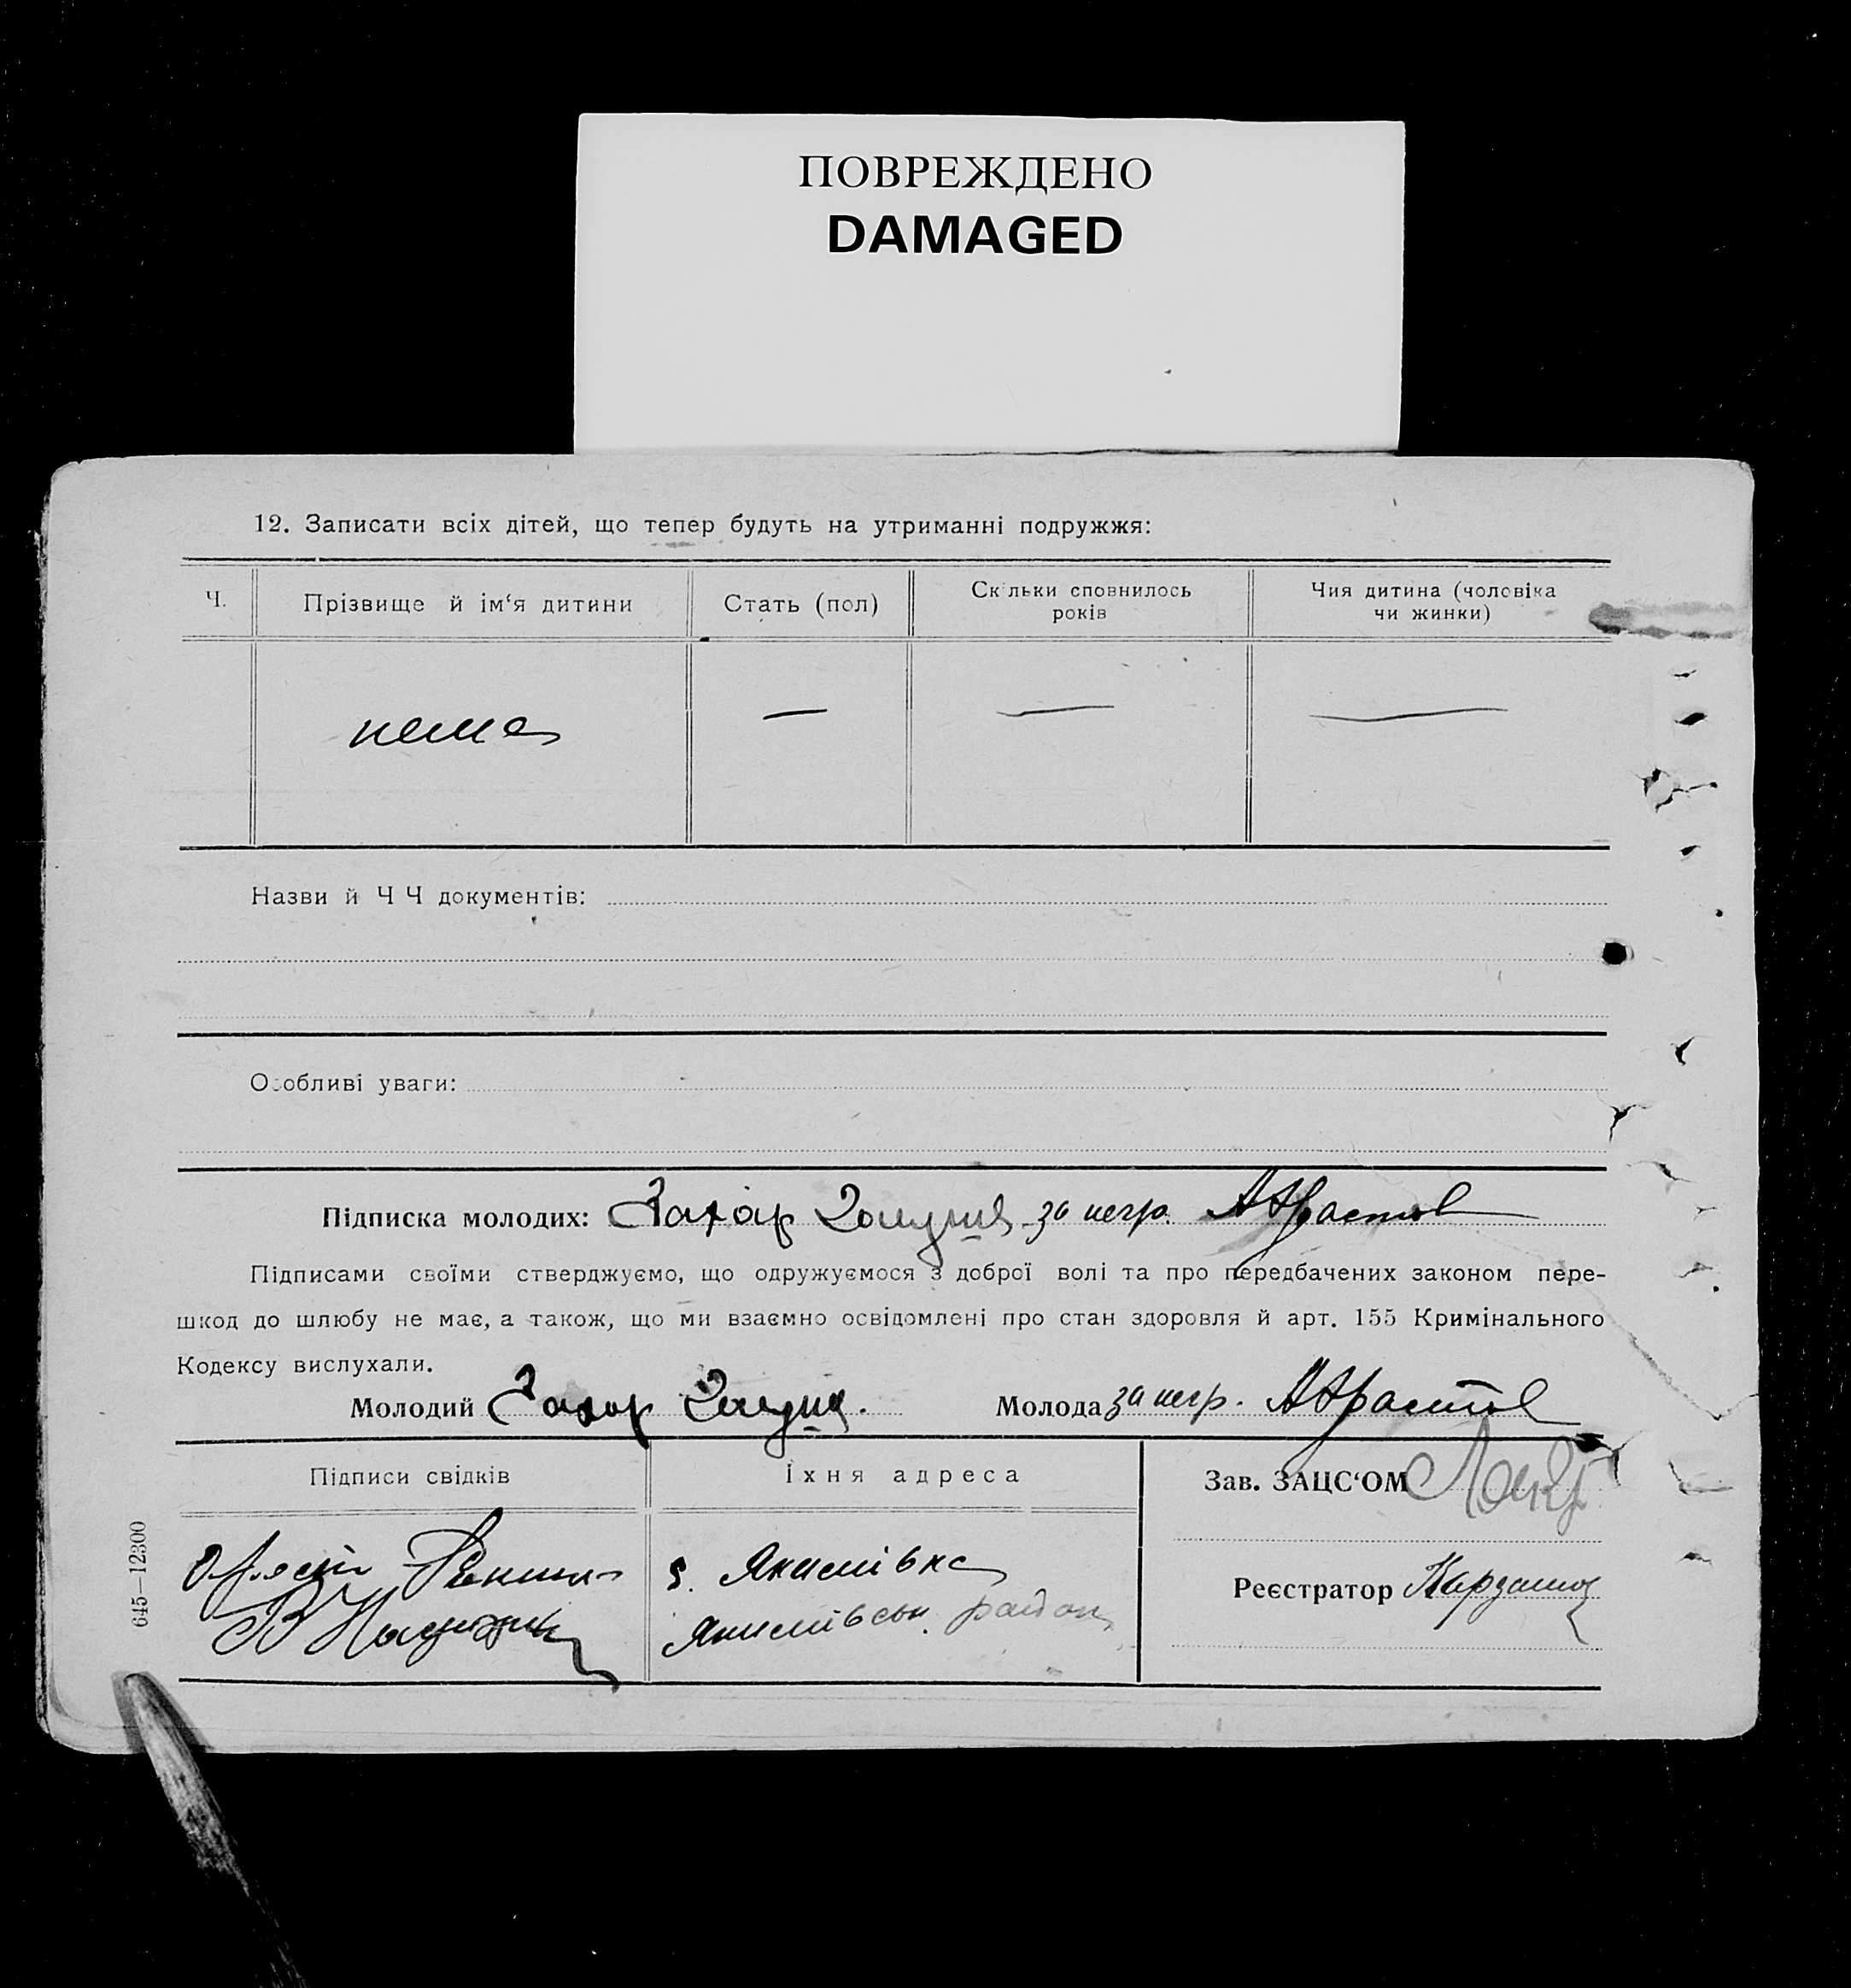 ПОВРЕЖДЕНО
DAMAGED
12. Записати всіх дітей, що тепер будуть на утриманні подружжя:
Ч. Прізвище й ім‘я дитини Стать (пол) Скільки сповнилось років Чия дитина (чоловіка чи жинки)
нема — — —
Назви й Ч Ч документів:
Особливі уваги:
Підписка молодих: Захар за негр.
Підписами своїми стверджуємо, що одружуємося з доброї волі та про передбачених законом пере-
шкод до шлюбу не має, а також, що ми взаємно освідомлені про стан здоровля й арт. 155 Кримінального
Кодексу вислухали.
Молодий Захар Молода за негр.
Підписи свідків Їхня адреса Зав. ЗАЦС‘ОМ
с. Якимівка
Якимівськ. район
Реєстратор
645—12300